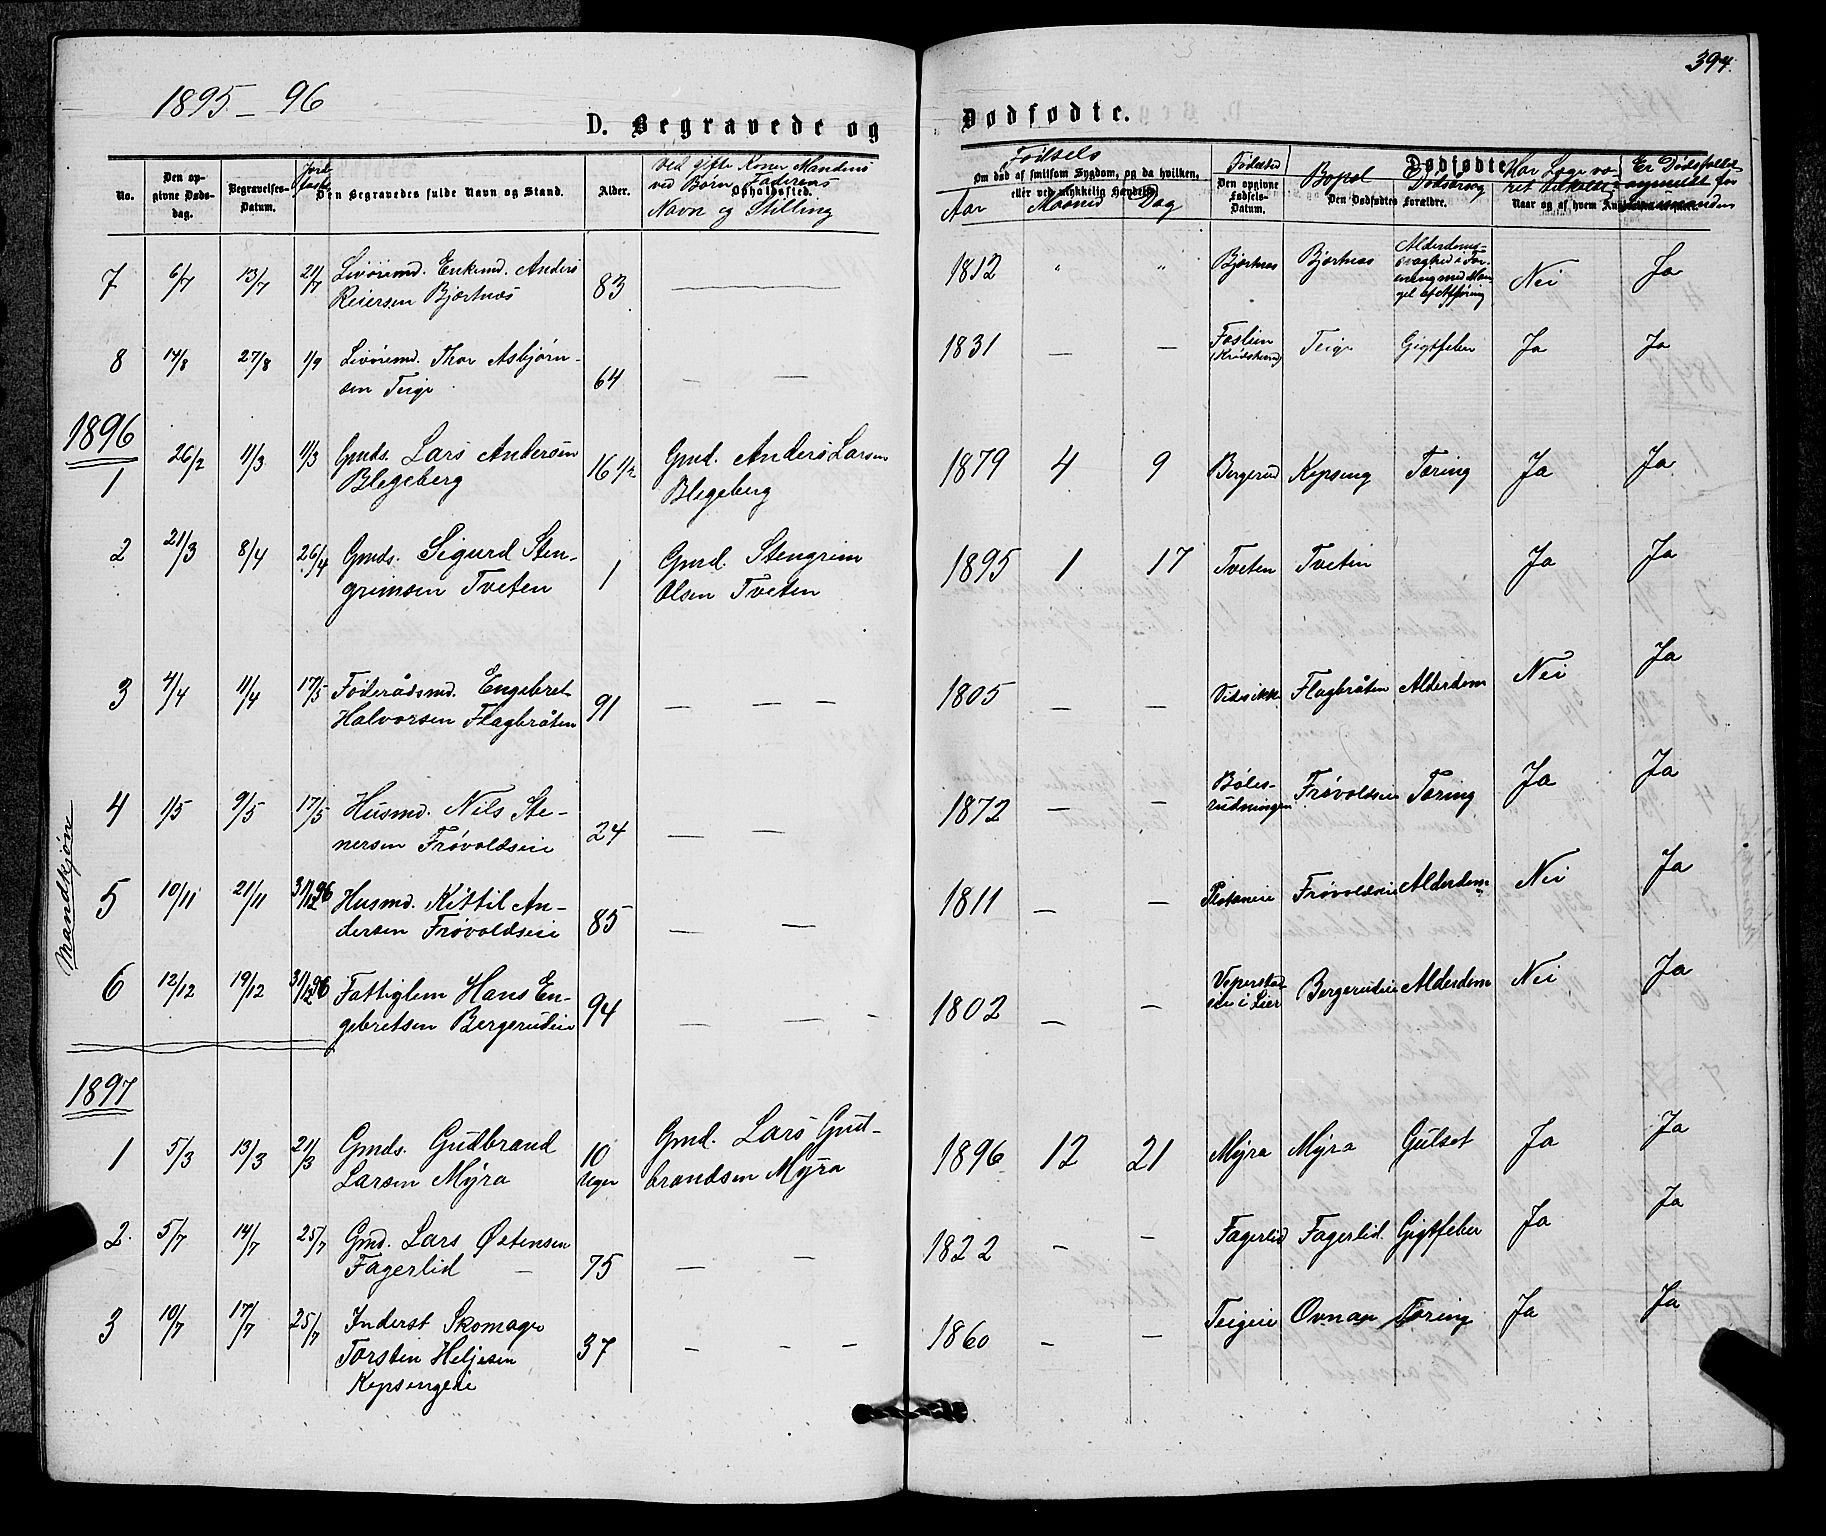 394.
1895 - 96
D. Begravede og Dødfødte.
No. | Den opgivne Dødsdag. | Begravelses-Datum. | Jordfæst. | Den Begravedes fulde Navn og Stand. | Alder. | Opholdssted. Ved gifte Koner Mandens ved Børn Faderens Navn og Stilling | Fødsels Aar Maaned Dag | Om død af smitsom Sygdom, og da hvilken, eller ved ulykkelig Hændelse. | Fødested Den opgivne Fødsels-Datum. | Dødfødte. Bopæl Dødsaarsag Den Dødfødtes Forældre. | Har Læge været tilkaldt | Er Dødsfaldet anmeldt for
Mandkjøn
7 | 6/7 | 13/7 | 21/7 | Livøremd. Enkemd. Anders Reiersen Bjørtnæs | 83 | — | 1812 | " | " | Bjørtnæs | Bjørtnæs | Alderdomssvaghed i Forening med Mangel af Afføring | Nei | Ja
8 | 14/8 | 27/8 | 1/9 | Livøremd. Thor Asbjørnsen Teige | 64 | — — | 1831 | — | — | Foslien (Krødsherred) | Teige | Gigtfeber | Ja | Ja
1896
1 | 26/2 | 11/3 | 11/3 | Gmds. Lars Andersen Blegeberg | 16 1/2 | Gmd. Anders Larsen Blegeberg | 1879 | 4 | 9 | Bergerud | Kopseng | Tæring | Ja | Ja
2 | 21/3 | 8/4 | 26/4 | Gmds. Sigurd Stengrimsen Tveten | 1 | Gmd. Stengrim Olsen Tveten | 1895 | 1 | 17 | Tveten | Tveten | | Ja | Ja
3 | 4/4 | 11/4 | 17/5 | Føderådsmd. Engebret Halvorsen Flagbråten | 91 | — — — | 1805 | — | — | Vidvikk | Flagbråten | Alderdom | Nei | Ja
4 | 1/5 | 9/5 | 17/5 | Husmd. Nils Stenersen Frøvoldseie | 24 | — — | 1872 | — | — | Bølesrudningen | Frøvoldseie | Tæring | Ja | Ja
5 | 10/11 | 21/11 | 31/12 96 | Husmd. Kittil Andersen Frøvoldseie | 85 | — — | 1811 | — | — | Plataneie | Frøvoldseie | Alderdom | Nei | Ja
6 | 12/12 | 19/12 | 31/12 96 | Fattiglem Hans Engebretsen Bergerudeie | 94 | — — - | 1802 | — | — | i Lier | Bergerudeie | Alderdom | Nei | Ja
1897
1 | 5/3 | 13/3 | 21/3 | Gmds. Gudbrand Larsen Myra | 10 Uger | Gmd. Lars Gudbrandsen Myra | 1896 | 12 | 21 | Myra | Myra | Gulsot | Ja | Ja
2. | 5/7 | 14/7 | 25/7 | Gmd. Lars Østensen Fagerlid | 75 | — — | 1822 | — | — | Fagerlid | Fagerlid. | Gigtfeber | Ja | Ja
3 | 10/7 | 17/7 | 25/7 | Inderst Skomager Torsten Heljesen Kopsengeie | 37 | - - — | 1860 | — | — | Teigeie | Ovnan | Tæring | Ja | Ja